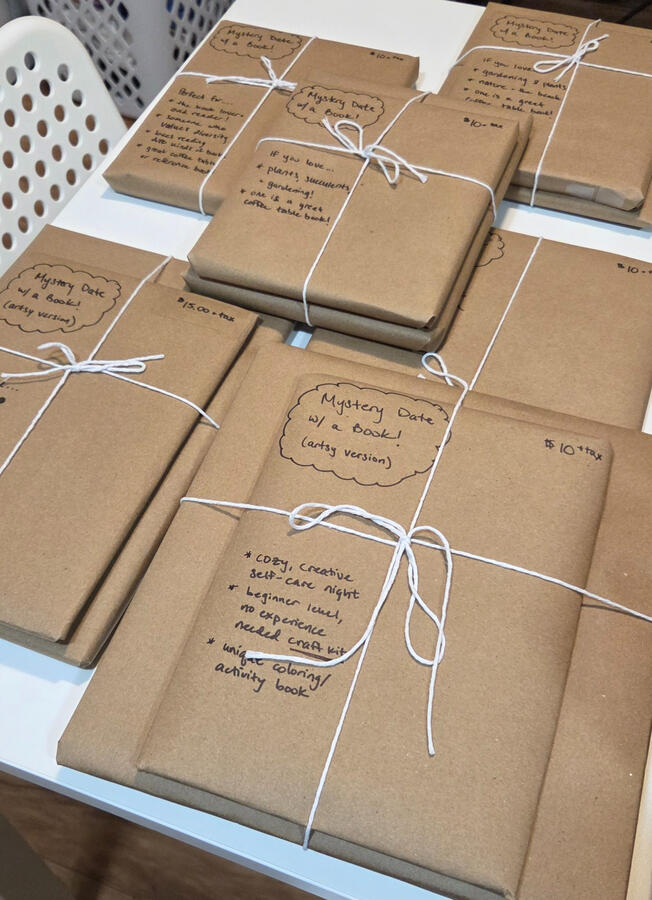 Mystery Date
w/ a Book!
$10 + tax
Perfect for...
* the book lover
one reader!
* someone who
values diversity
* loves reading
great coffee table
or reference book
Mystery Date
w/ a Book!
If you love...
* gardening & plants
* nature - the beach
* one is a great
coffee table book!
Mystery Date
w/ a Book!
$10 + tax
If you love...
* plants, succulents,
+ gardening!
* one is a great
coffee table book!
Mystery Date
w/ a Book!
(artsy version)
$15.00 + tax
$10 +
Mystery Date
w/ a Book!
(artsy version)
$10 + tax
* cozy, creative
self-care night
* beginner level,
no experience
needed craft kit
* unique coloring/
activity book